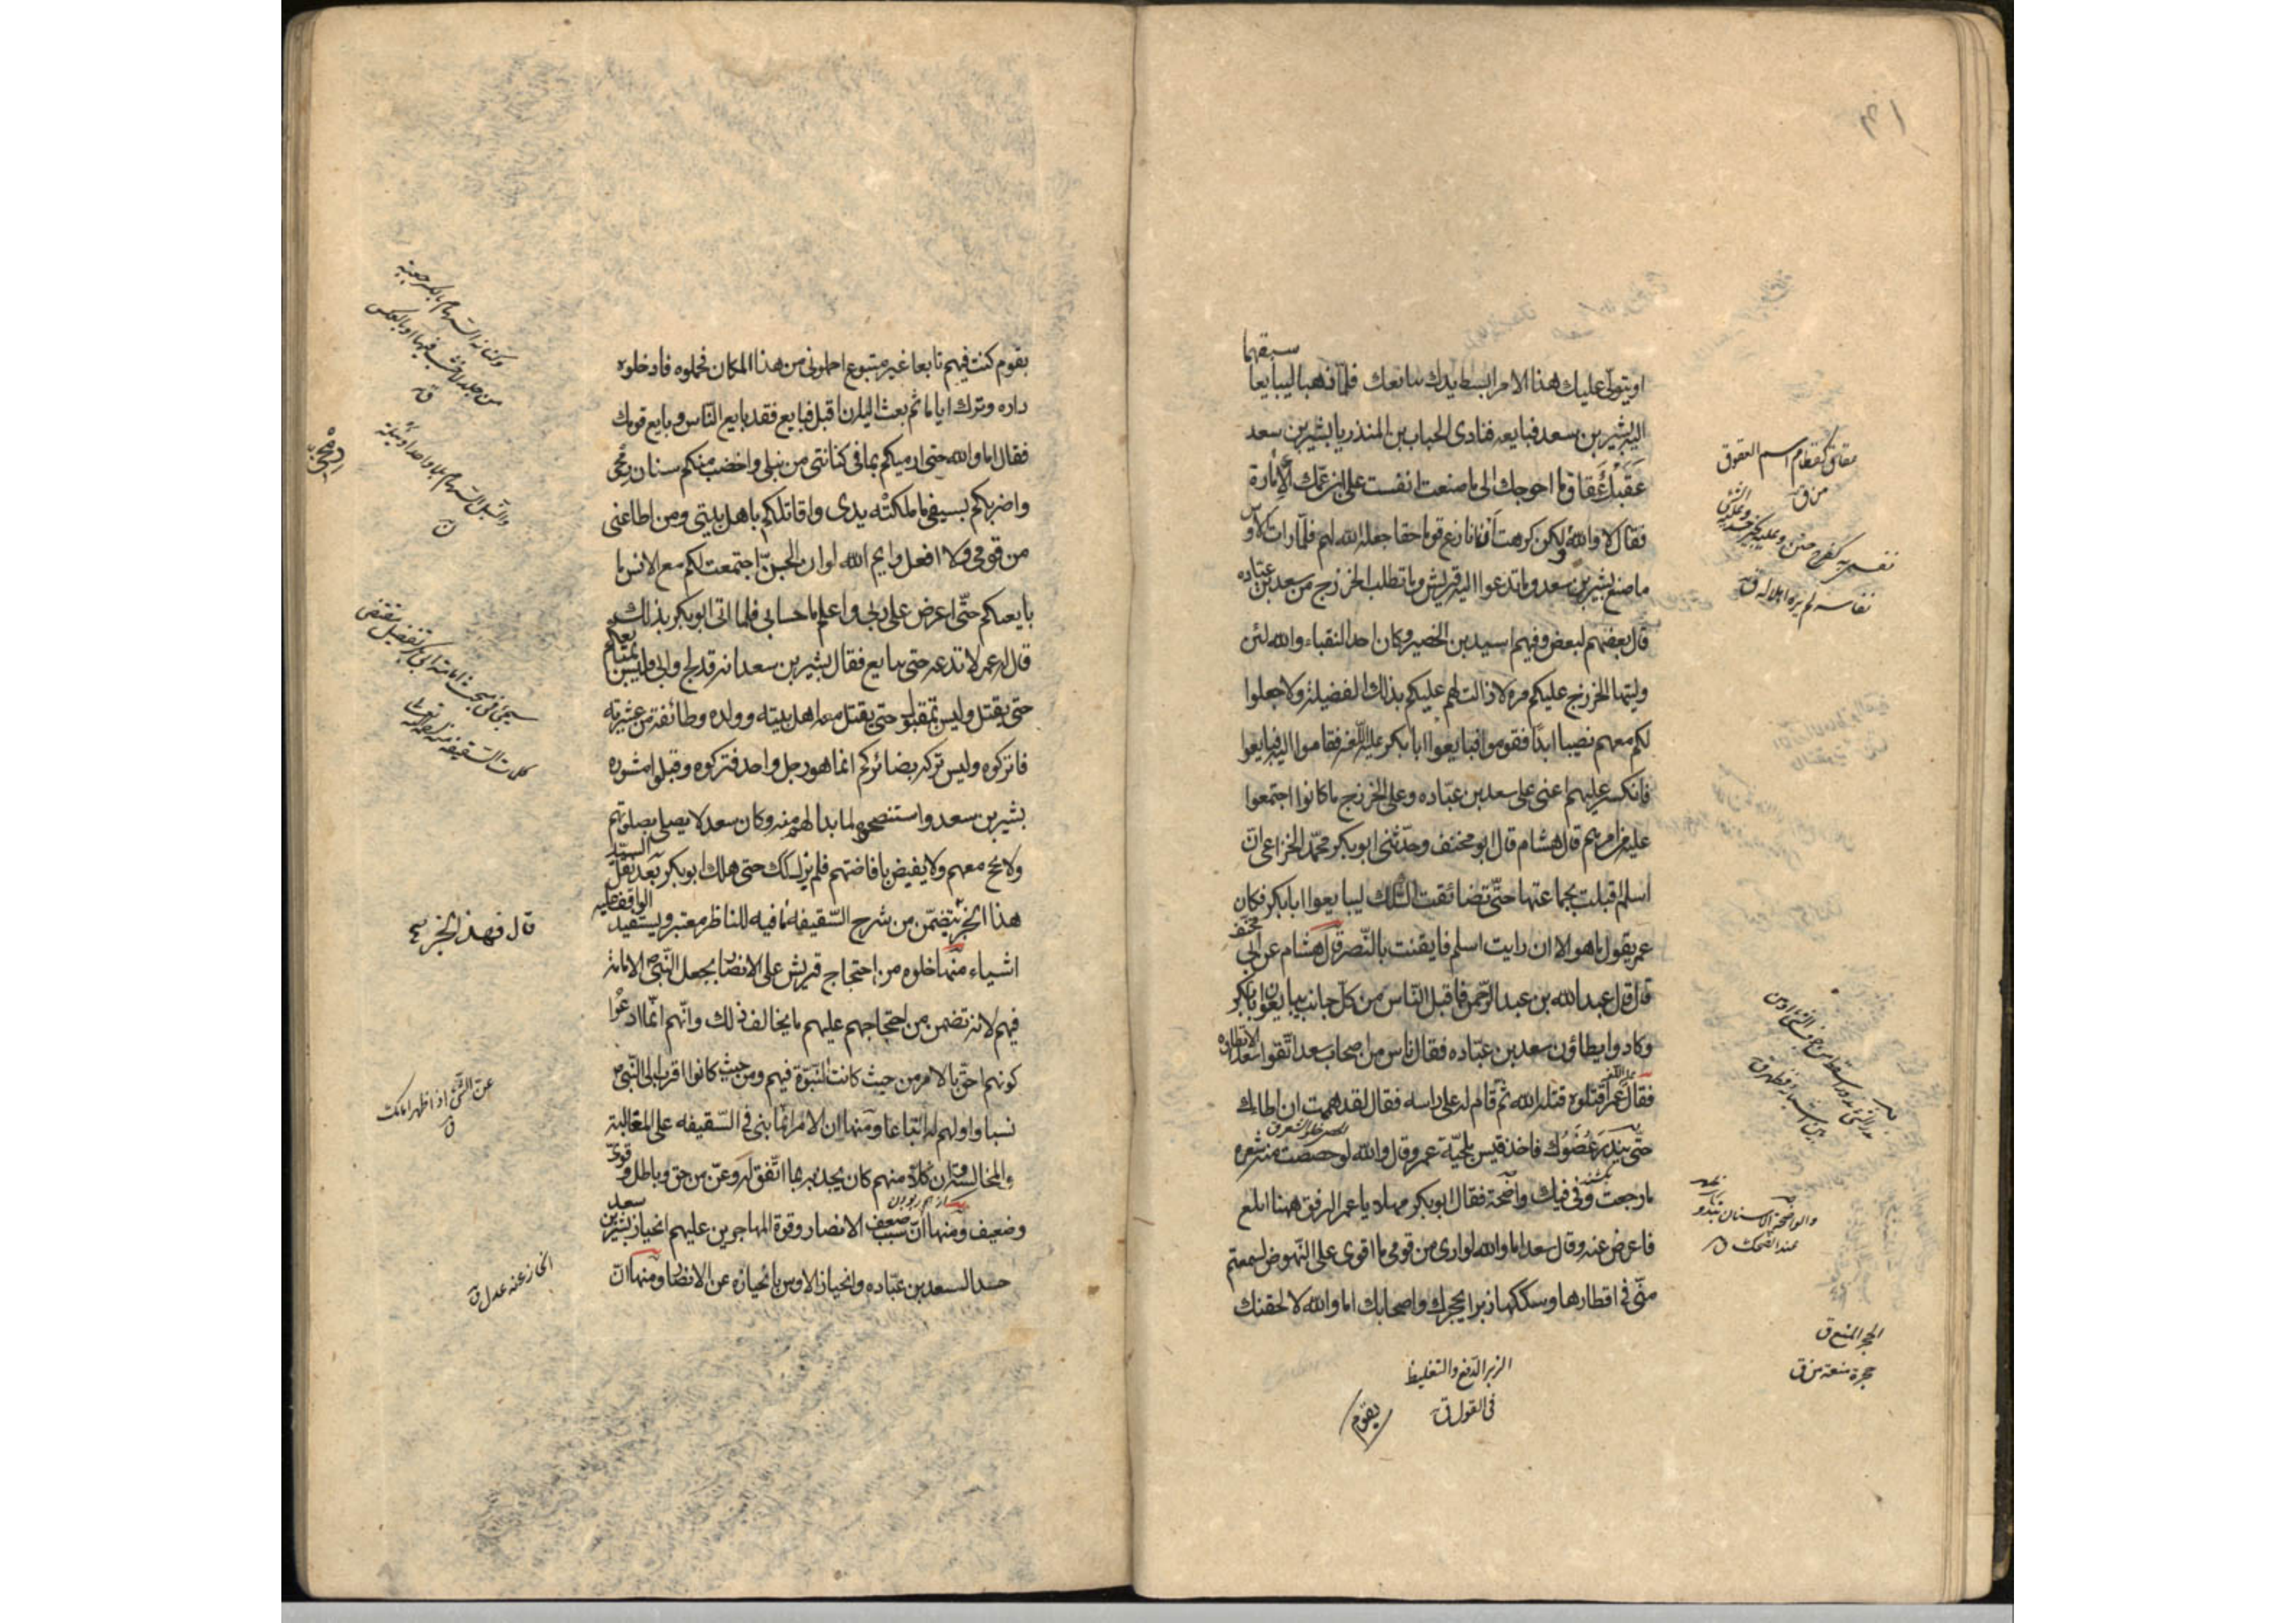 سبقهما
او يتولى عليك هذا الامر ابسط يدك نبايعك فلما ذهبا ليبايعا
اليه بشير بن سعد فبايعه فنادى الحباب بن المنذر يا بشير بن سعد
عققت عقاق ما احوجك الى ما صنعت انفست على ابن عمك الامارة
فقال لا والله ولكن كرهت ان انازع قوما حقا جعله الله لهم فلما رات الاوس
ما صنع بشير بن سعد وما تدعوا اليه قريش وما تطلب الخزرج من سعد بن عباده
قال بعضهم لبعض وفيهم اسيد بن الحضير وكان احد النقباء والله لئن
وليتها الخزرج عليكم مره لا زالت لهم عليكم بذلك الفضيلة ولا جعلوا
لكم معهم نصيبا ابدا فقوموا فبايعوا ابا بكر فقاموا اليه فبايعوا
فانكسر عليهم اعنى على سعد بن عباده وعلى الخزرج ما كانوا اجتمعوا
عليه من امرهم قال هشام قال ابو مخنف وحدثنى ابو بكر محمد الخزاعى ان
اسلم اقبلت بجماعتها حتى تضائقت السكك ليبايعوا ابا بكر فكان
عمر يقول ما هو الا ان رايت اسلم فايقنت بالنصر قال هشام عن ابى مخنف
قال قال عبد الله بن عبد الرحمن فاقبل الناس من كل جانب يبايعون ابا بكر
وكادوا يطاؤن سعد بن عباده فقال ناس من اصحاب سعد اتقوا سعدا لا تطاؤه
فقال عمر اقتلوه قتله الله ثم قام له على راسه فقال لقد هممت ان اطاك
حتى يندر عضوك فاخذ قيس بلحية عمر وقال والله لو حصصت منه شعره
ما رجعت وفى فيك واضحة فقال ابو بكر مهلا يا عمر الرفق ههنا ابلغ
فاعرض عنه وقال سعد اما والله لو ارى من قومى ما اقوى على النهوض لسمعتم
منى فى اقطارها وسككها زبرا يحجرك واصحابك اما والله لالحقنك
عقاق كقطام اسم العقوق
من ق
نفس به كفرح ضن
نفاسة لم يره اهلا له ق
والواضحة الاسنان تبدو
عند الضحك ق
الحجر المنع ق
حجرة منعة من ق
الزبر الدفع والتغليظ
فى القول ق
بقوم
بقوم كنت فيهم تابعا غير متبوع احملونى من هذا المكان فحملوه فادخلوه
داره وترك اياما ثم بعث اليه ان اقبل فبايع فقد بايع الناس وبايع قومك
فقال اما والله حتى ارميكم بما فى كنانتى من نبلى واخضب منكم سنان رمحى
واضربكم بسيفى ما ملكته يدى واقاتلكم باهل بيتى ومن اطاعنى
من قومى ولا افعل وايم الله لو ان الجن اجتمعت لكم مع الانس ما
بايعتكم حتى اعرض على ربى واعلم ما حسابى فلما اتى ابو بكر بذلك
قال له عمر لا تدعه حتى يبايع فقال بشير بن سعد انه قد لج وابى وليس بمبايعكم
حتى يقتل وليس بمقتول حتى يقتل معه اهل بيته وولده وطائفة من عشيرته
فاتركوه وليس تركه بضائركم انما هو رجل واحد فتركوه وقبلوا مشوره
بشير بن سعد واستنصحوه لما بدا لهم منه وكان سعد لا يصلى بصلوتهم
ولا يحج معهم ولا يفيض بافاضتهم فلم يزل كذلك حتى هلك ابو بكر بعد نقل السيد
هذا الخبر يتضمن من شرح السقيفه ما فيه للناظر معتبر ويستفيد الواقف عليه
اشياء منها خلوه من احتجاج قريش على الانصار بجعل النبى الامامة
فيهم لانه تضمن من احتجاجهم عليهم ما يخالف ذلك وانهم انما ادعوا
كونهم احق بالامر من حيث كانت النبوة فيهم ومن حيث كانوا اقرب الى النبى
نسبا واولهم له اتباعا ومنها ان الامر انما بنى فى السقيفه على المغالبة
والمخالسة وان كلا منهم كان يجذبه بما اتفق له وعن من حق وباطل وقوى
وضعيف ومنها ان سبب ضعف الانصار وقوة المهاجرين عليهم انحياز بشير بن سعد
حسدا لسعد بن عباده وانحياز الاوس بانحيازه عن الانصار ومنها ان
رمحى
قال فهذا الخبر
عن الشئ اذا ظهر امامك
ق
انحاز عنه عدل ق